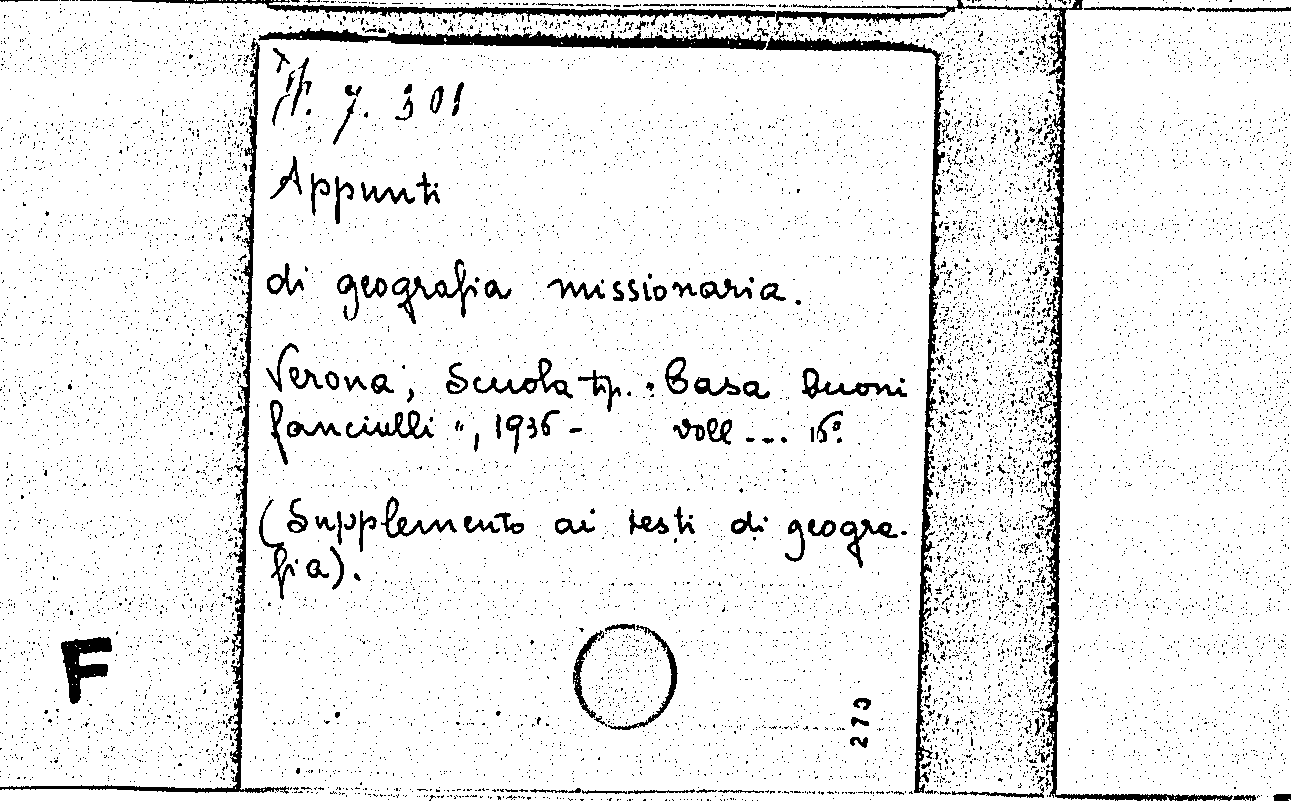 7. 301
Appunti
di geografia missionaria.
Verona, Scuola tip. "Casa Buoni
fanciulli", 1936 - voll --- 16º.
(Supplemento ai testi di geogra-
fia).
F
270